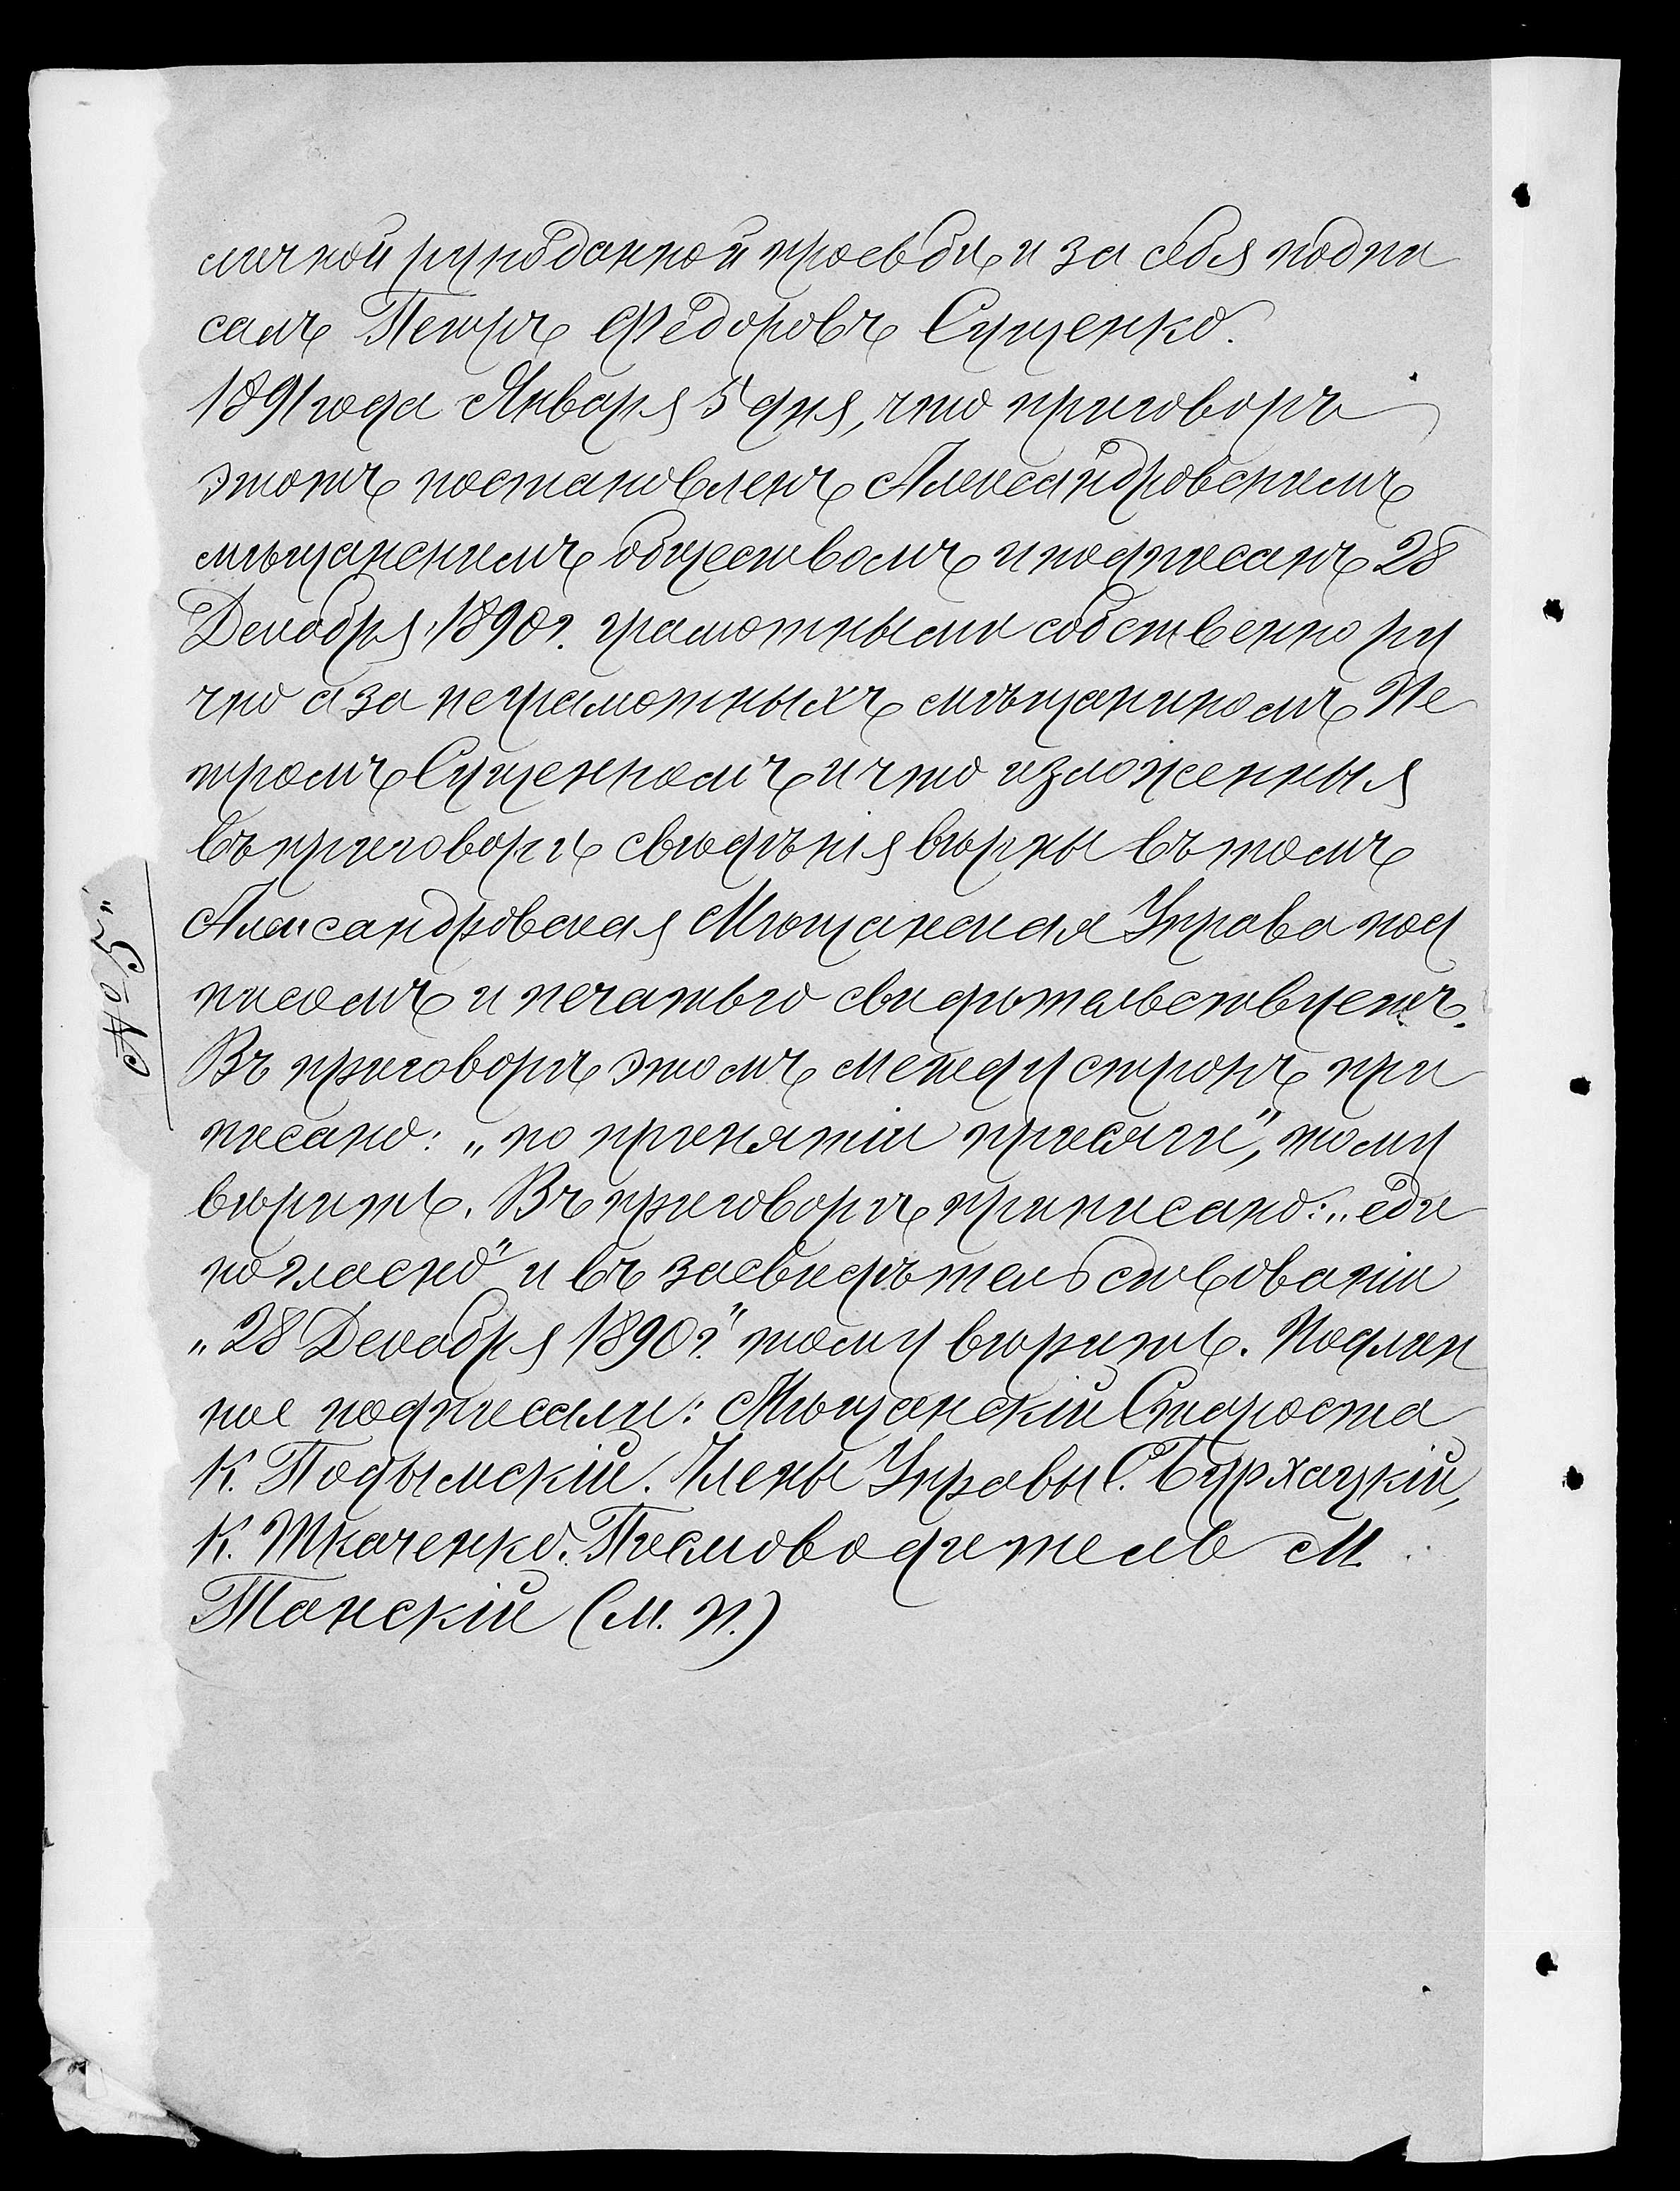 личной рукоданной просьбѣ и за себя подпи
салъ Петръ Ѳедоровъ Сущенко.
1891 года Января 5 дня, что приговоръ
этотъ постановленъ Александровскимъ
мѣщанскимъ обществомъ и подписанъ 28
Декабря 1890 г. грамотными собственно ру
чно а за неграмотныхъ мѣщаниномъ Пе
тромъ Сущенкомъ и что изложенныя
въ приговорѣ свѣдѣнія вѣрны въ томъ
Александровская Мѣщанская Управа под
писомъ и печатью свидѣтельствуетъ.
Въ приговорѣ этомъ между строкъ при
писано: „по принятіи присяги", тому
вѣрить. Въ приговорѣ приписано: „еди
ногласно" и въ засвидѣтельствованіи
„28 Декабря 1890 г." тому вѣрить. Подлин
ное подписали: Мѣщанскій Староста
К. Подымскій. Члены Управы С. Бурхацкій,
К. Ткаченко. Письмоводитель М.
Танскій (М. П.)
№ 5"